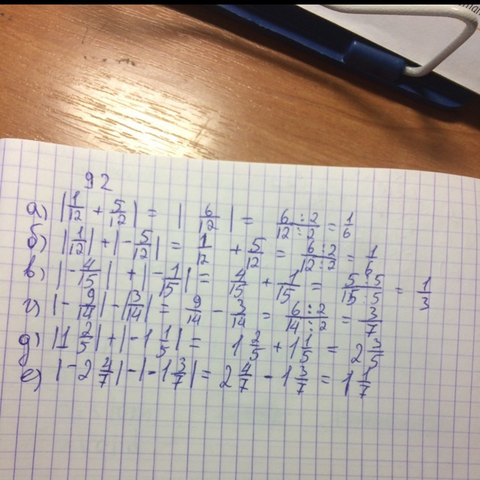 92
а) |1/12 + 5/12| = |6/12| = 6:2/12:2 = 1/6
б) |1/12| + |-5/12| = 1/12 + 5/12 = 6:2/12:2 = 1/6
в) |-4/15| + |-1/15| = 4/15 + 1/15 = 5:5/15:5 = 1/3
г) |-9/14| - |3/14| = 9/14 - 3/14 = 6:2/14:2 = 3/7
д) |1 2/5| + |-1 1/5| = 1 2/5 + 1 1/5 = 2 3/5
е) |-2 4/7| - |-1 3/7| = 2 4/7 - 1 3/7 = 1 1/7